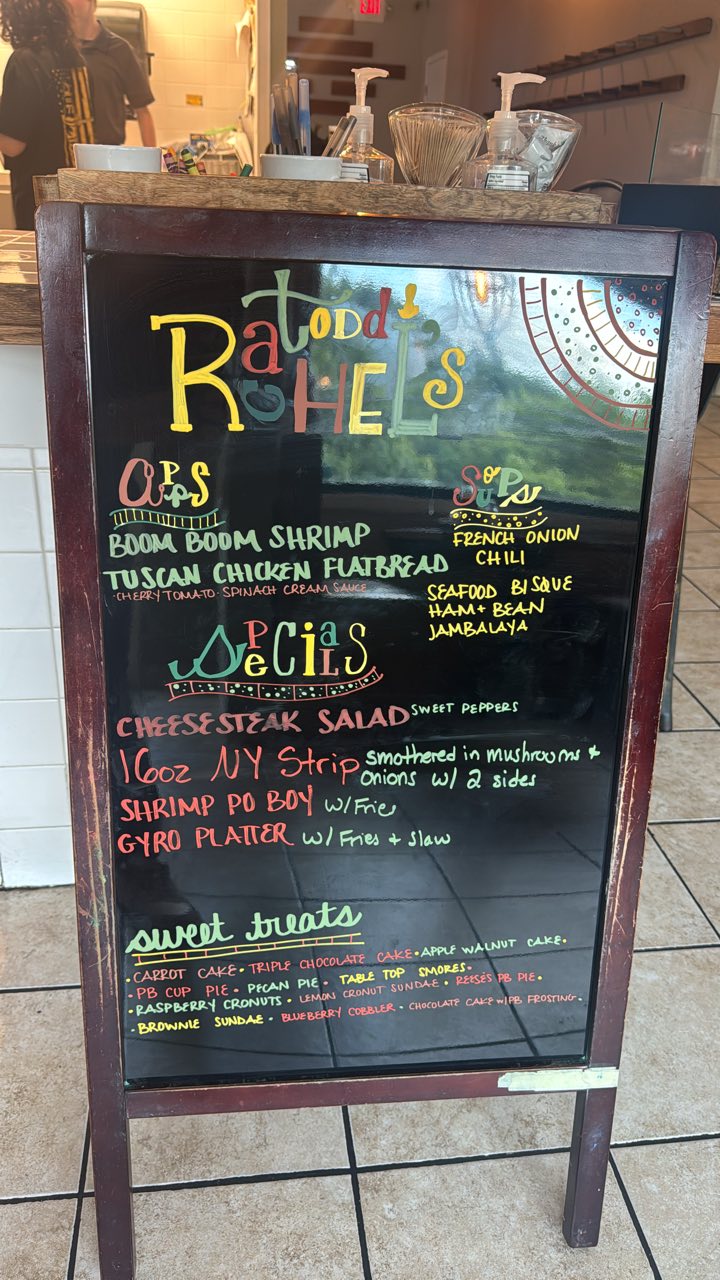 Ratodd's
RacHEL's
apps
BOOM BOOM SHRIMP
TUSCAN CHICKEN FLATBREAD
·CHERRY TOMATO· SPINACH CREAM SAUCE
SoUps
FRENCH ONION
CHILI
SEAFOOD BISQUE
HAM + BEAN
JAMBALAYA
SPeCiaLS
CHEESESTEAK SALAD SWEET PEPPERS
16oz NY Strip smothered in mushrooms +
onions w/ 2 sides
SHRIMP PO BOY w/Fries
GYRO PLATTER w/ Fries + Slaw
sweet treats
·CARROT CAKE· TRIPLE CHOCOLATE CAKE·APPLE WALNUT CAKE·
·PB CUP PIE· PECAN PIE· TABLE TOP SMORES·
·RASPBERRY CRONUTS· LEMON CRONUT SUNDAE · REESE'S PB PIE·
·BROWNIE SUNDAE· BLUEBERRY COBBLER· CHOCOLATE CAKE W/PB FROSTING·